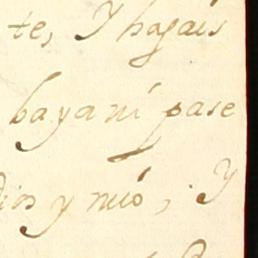 te, Y hagais
baya ni pase
dios y mio, Y